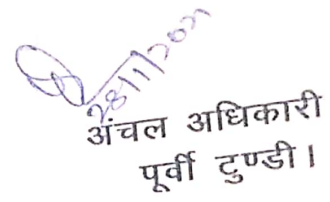 28/11/2021
अंचल अधिकारी
पूर्वी टुण्डी।